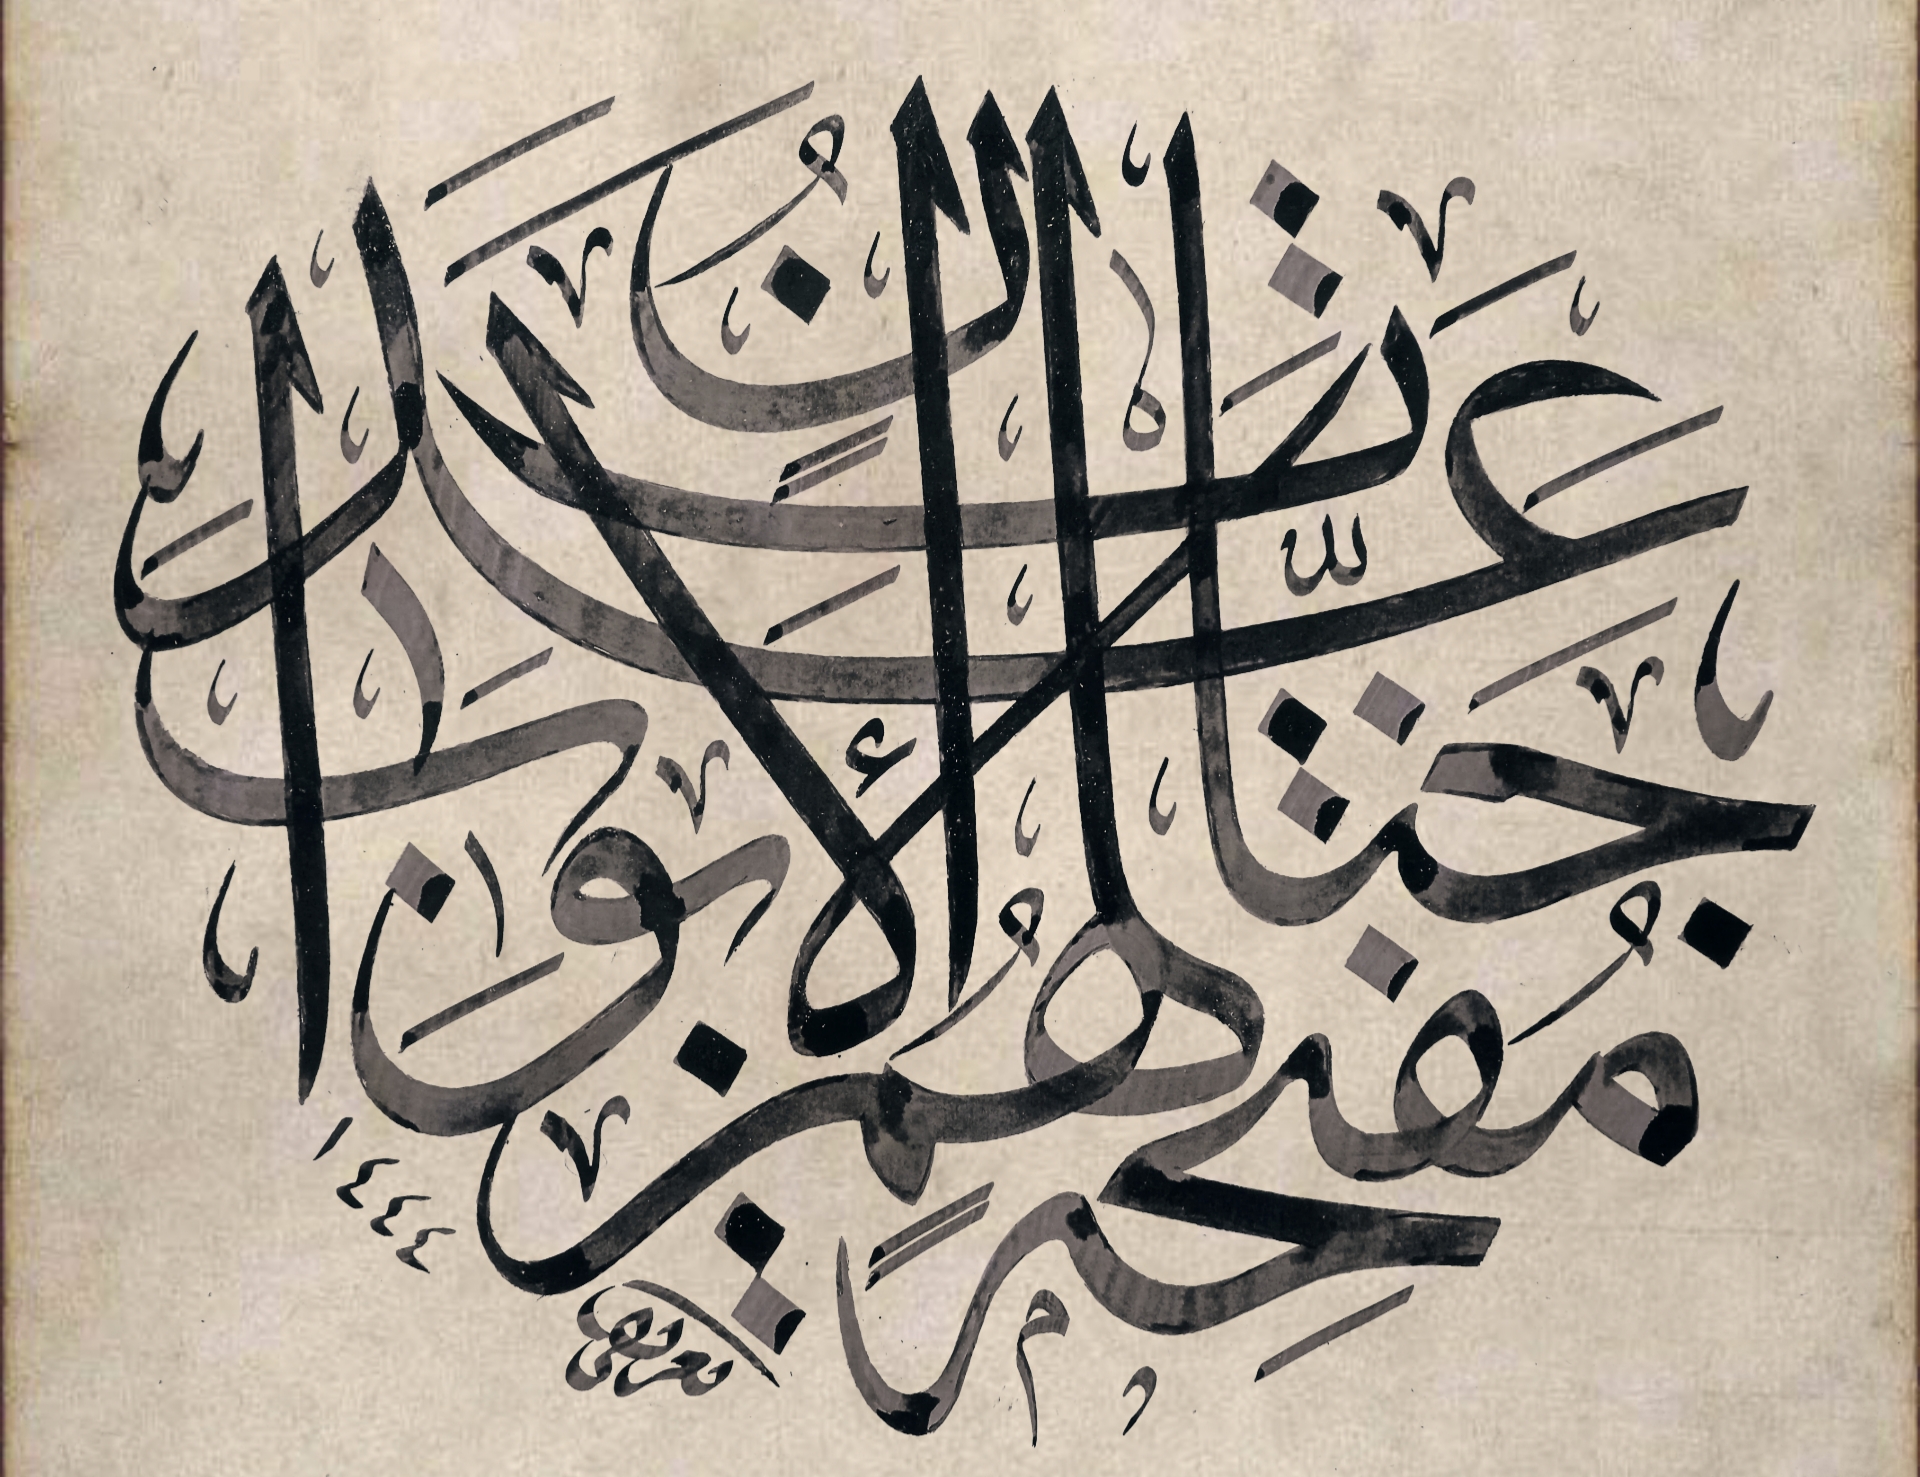 جَنَّاتِ عَدْنٍ مُفَتَّحَةً لَهُمُ الْأَبْوَابُ
١٤٤٤